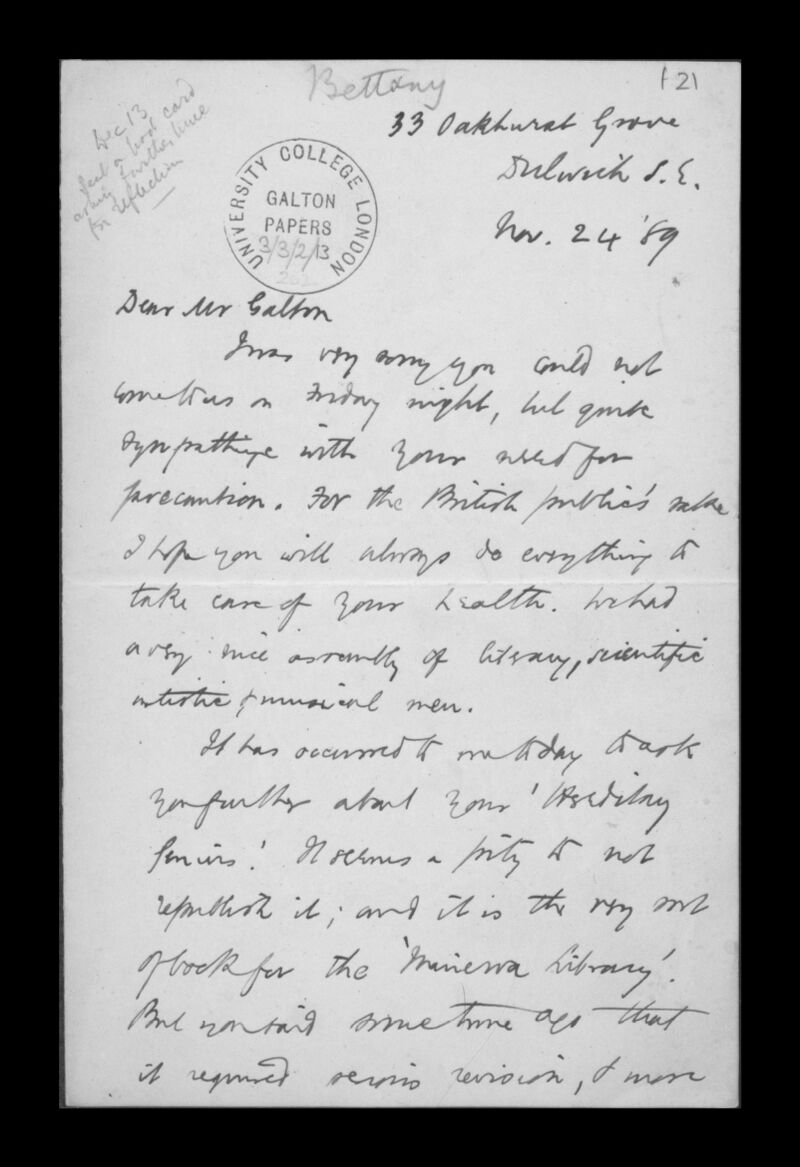 Bettany
f 21
Dec 13
sent a post card
asking further time
for reflection
UNIVERSITY COLLEGE LONDON
GALTON
PAPERS
3/3/2/13
33 Oakhurst Grove
Dulwich S.E.
Nov. 24 '89
Dear Mr Galton
I was very sorry you could not
come to us on Friday night, but quite
sympathize with your need for
precaution. For the British public's sake
I hope you will always do everything to
take care of your health. We had
a very nice assembly of literary, scientific
artistic & musical men.
It has occurred to me to day to ask
you further about your 'Hereditary
Genius'. It seems a pity to not
republish it; and it is the very sort
of book for the 'Minerva Library'.
But you said some time ago that
it required serious revision, & more